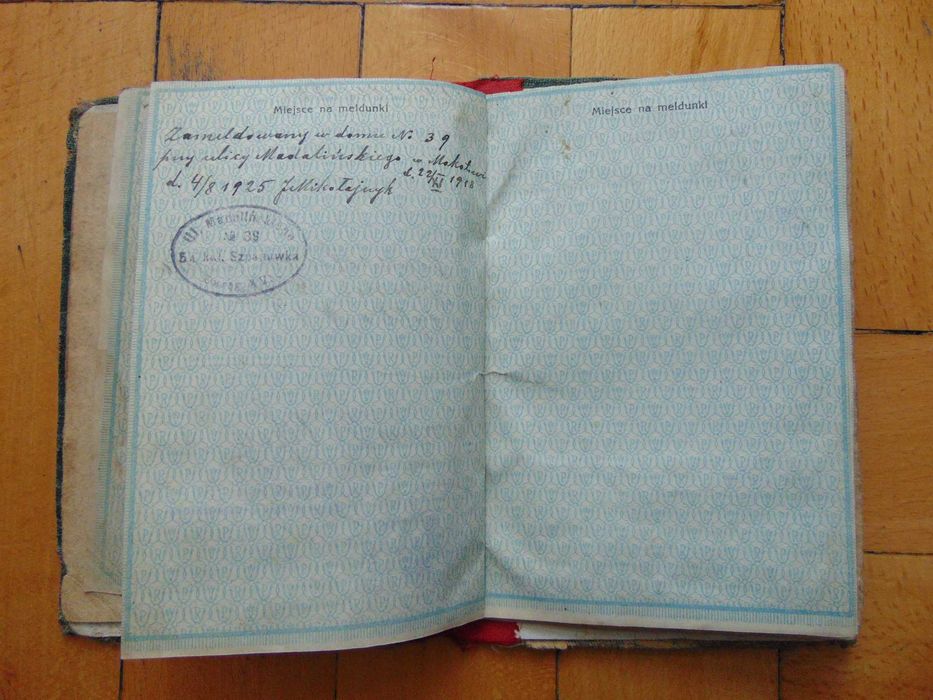 Miejsce na meldunki
Zameldowany w domu № 39
przy ulicy Madalińskiego w Mokotowie
d. 22/XI 1918
d. 4/8 1925 JMikołajczyk
Ul. Madalińskiego
№ 39
Szpanówka
Miejsce na meldunki